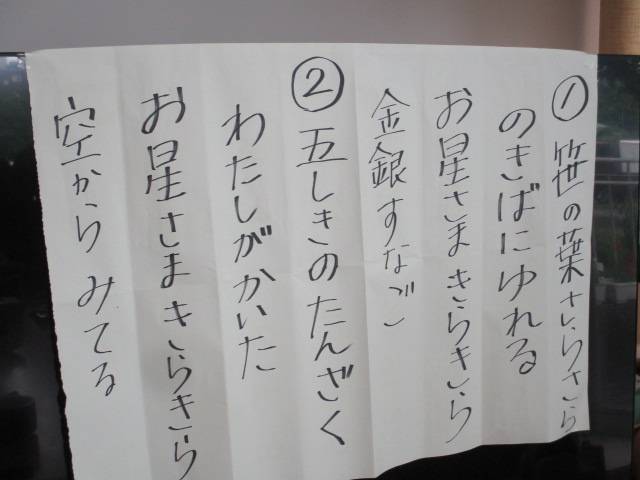 ①笹の葉さらさら
のきばにゆれる
お星さまきらきら
金銀すなご
②五しきのたんざく
わたしがかいた
お星さまきらきら
空からみてる